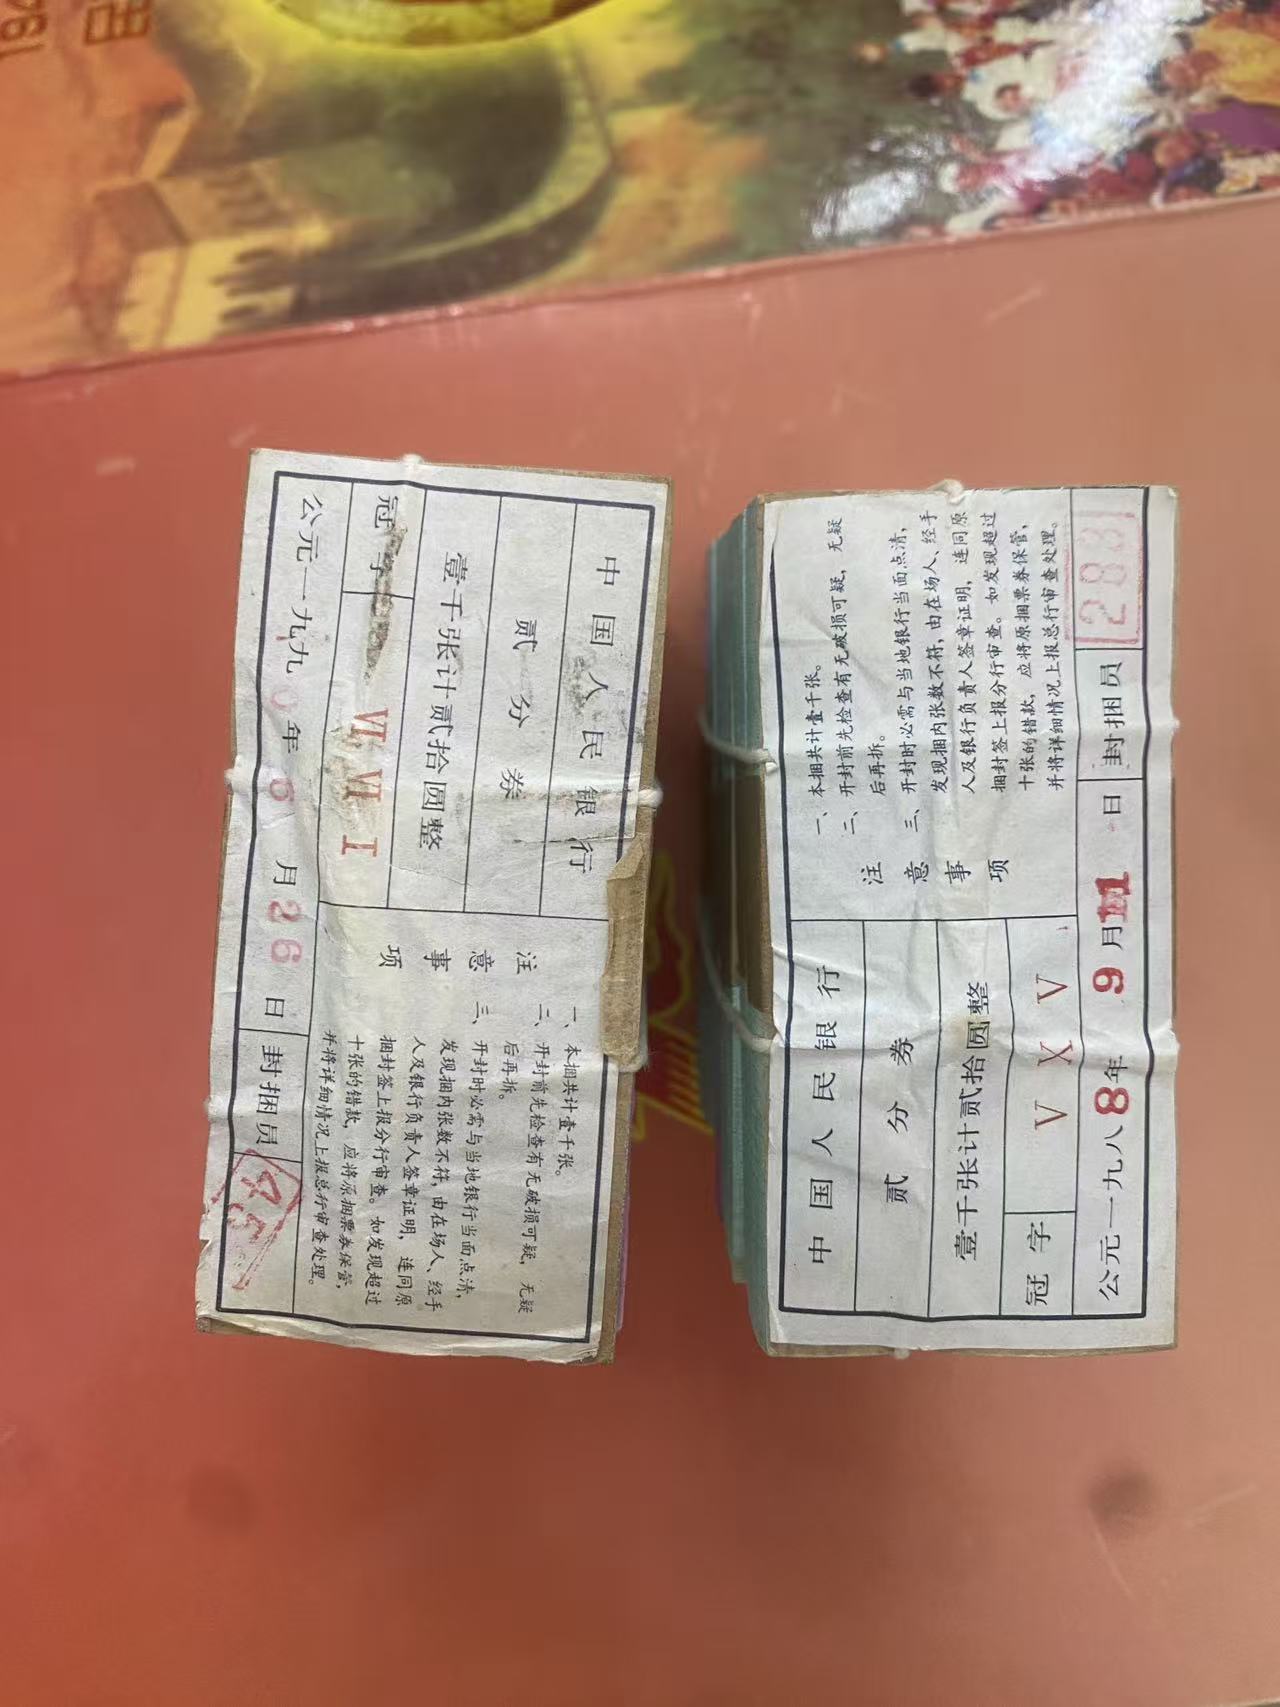 中国人民银行
贰分券
壹千张计贰拾圆整
冠字
VI VI I
公元一九九0年6月26日
封捆员
注意事项
一、本捆共计壹千张。
二、开封前先检查有无破损可疑，无疑
后再拆。
三、开封时必需与当地银行当面点清，
发现捆内张数不符，由在场人、经手
人及银行负责人签章证明，连同原
捆封签上报分行审查。如发现超过
十张的错款，应将原捆票券保管，
并将详细情况上报总行审查处理。
中国人民银行
贰分券
壹千张计贰拾圆整
冠字
V X V
公元一九八8年9月11日
封捆员
288
注意事项
一、本捆共计壹千张。
二、开封前先检查有无破损可疑，无疑
后再拆。
三、开封时必需与当地银行当面点清，
发现捆内张数不符，由在场人、经手
人及银行负责人签章证明，连同原
捆封签上报分行审查。如发现超过
十张的错款，应将原捆票券保管，
并将详细情况上报总行审查处理。